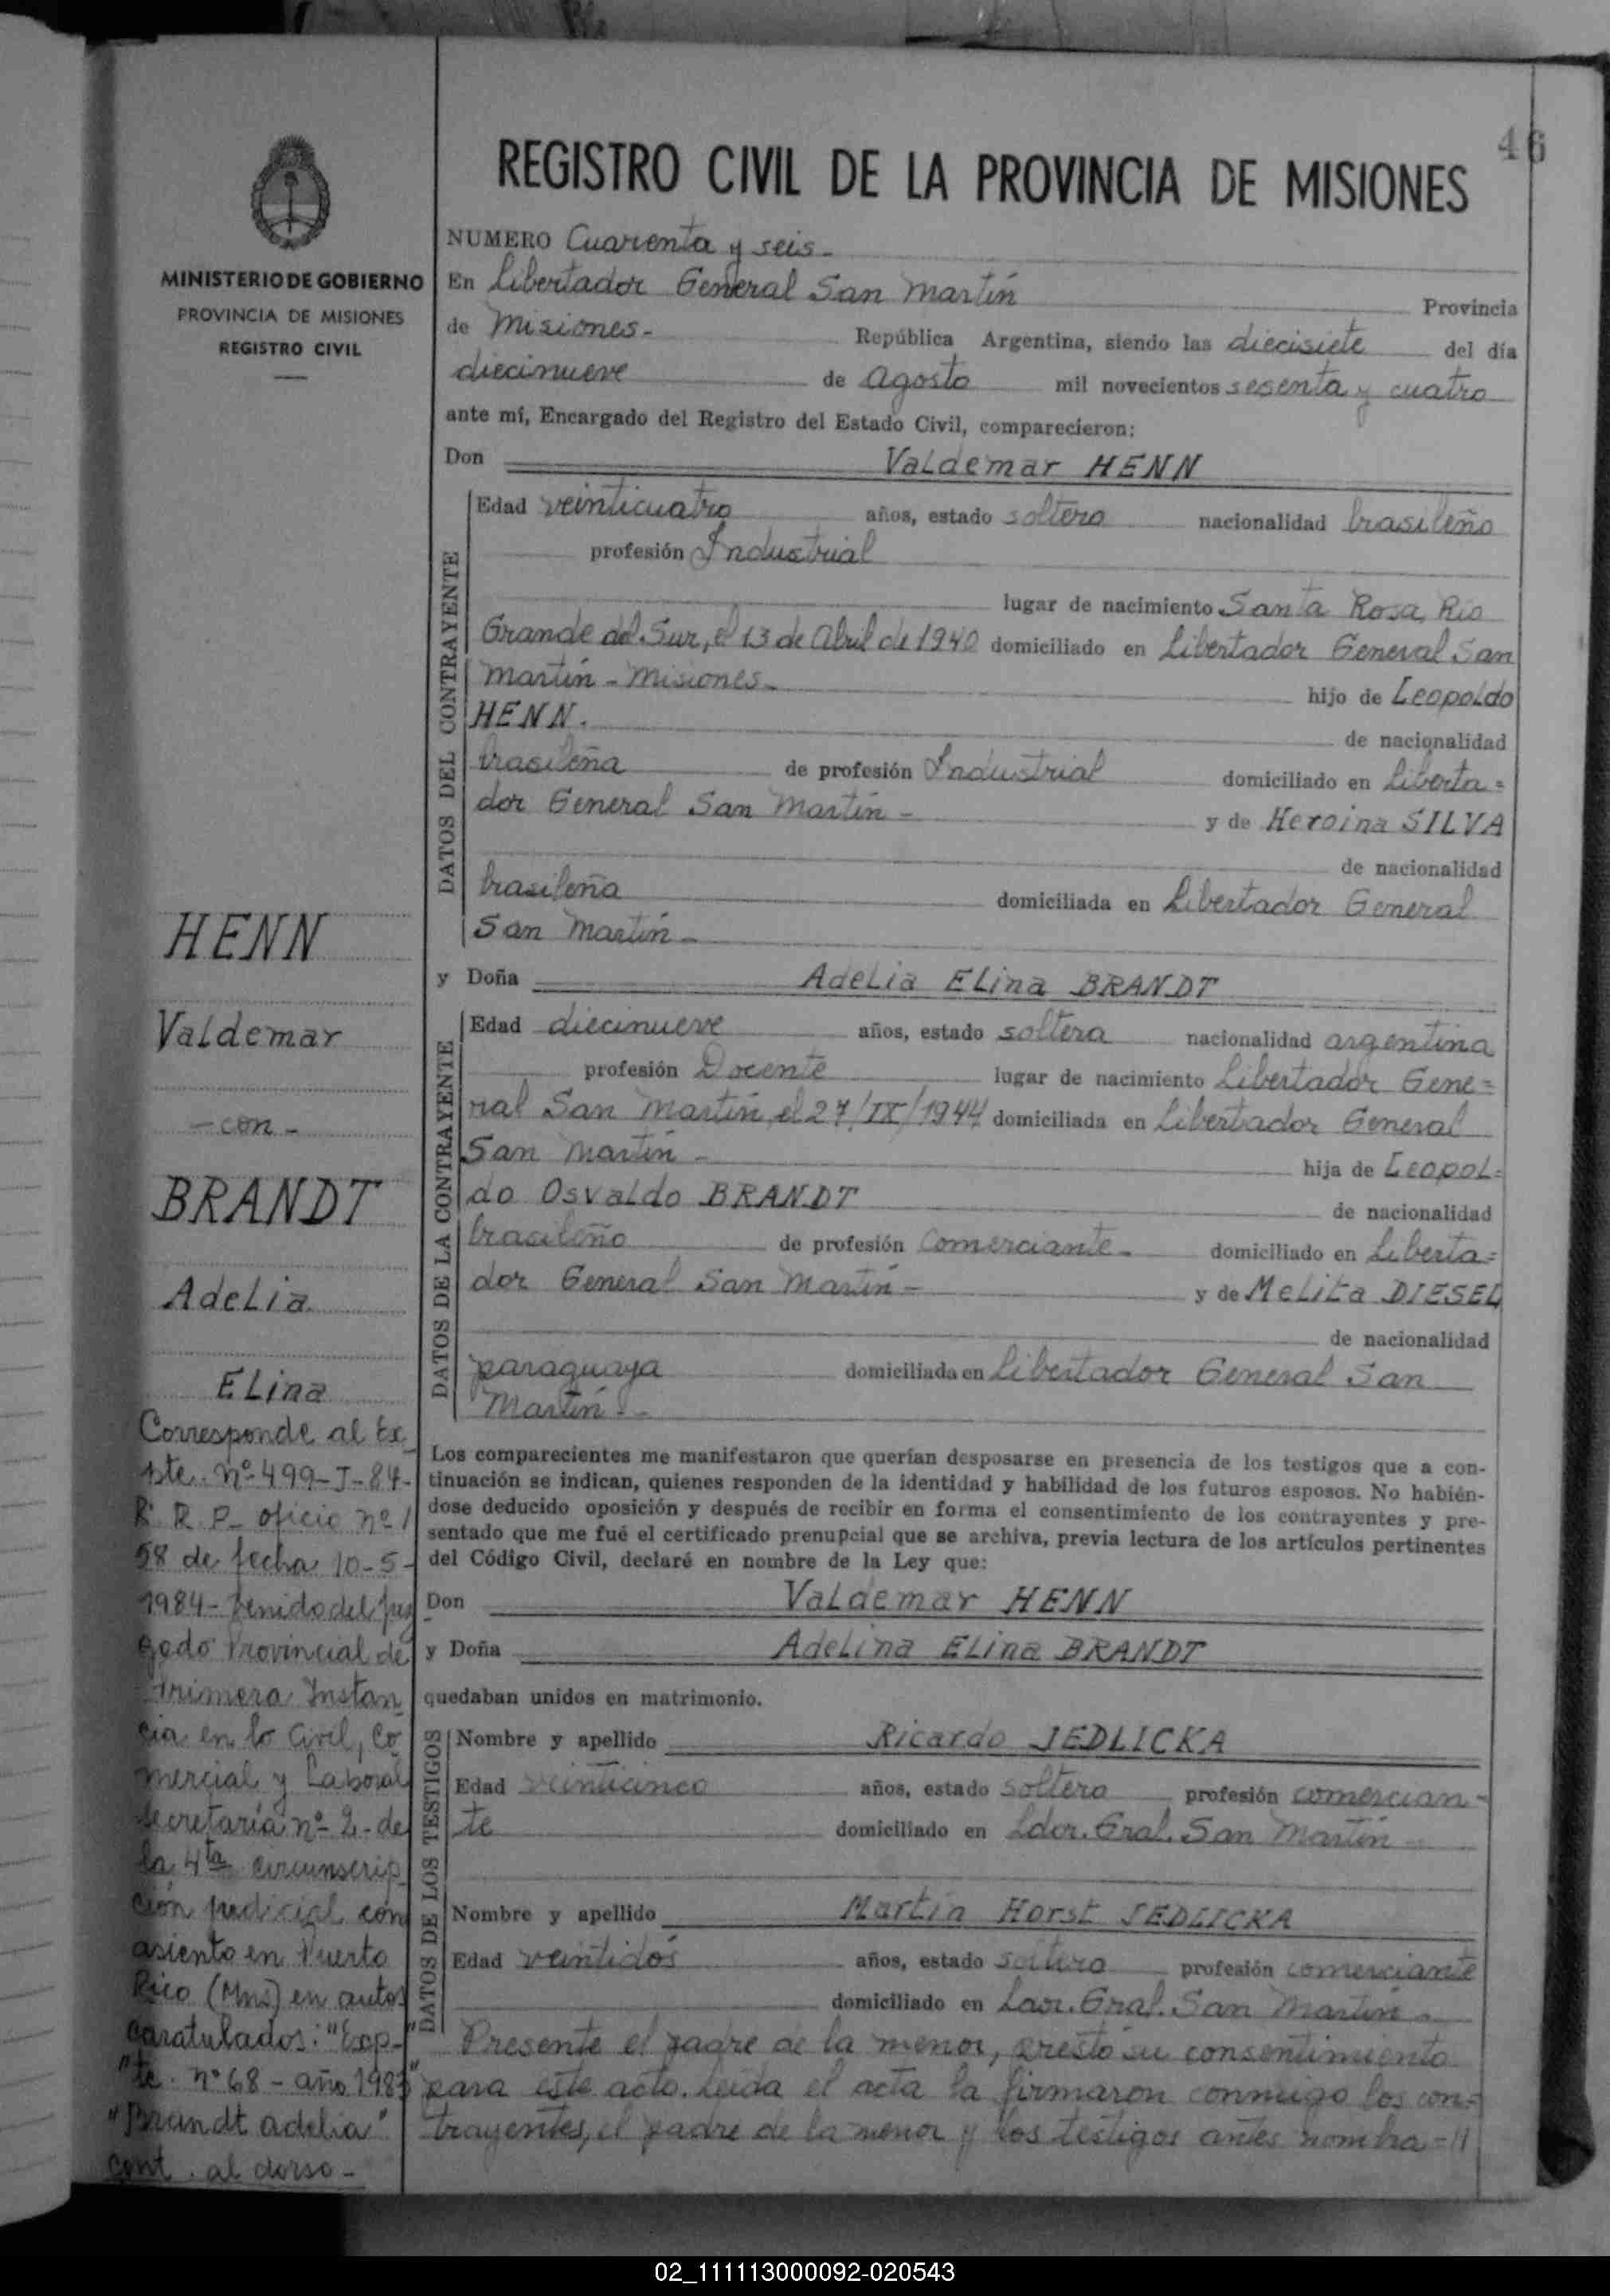 46
REGISTRO CIVIL DE LA PROVINCIA DE MISIONES
MINISTERIO DE GOBIERNO
PROVINCIA DE MISIONES
REGISTRO CIVIL
NUMERO Cuarenta y seis.-
En Libertador General San Martín Provincia
de Misiones.- República Argentina, siendo las diecisiete del día
diecinueve de agosto mil novecientos sesenta y cuatro
ante mí, Encargado del Registro del Estado Civil, comparecieron:
Don Valdemar HENN
DATOS DEL CONTRAYENTE
Edad veinticuatro años, estado soltero nacionalidad brasileño
profesión Industrial
lugar de nacimiento Santa Rosa, Rio
Grande del Sur, el 13 de Abril de 1940 domiciliado en Libertador General San
Martín - Misiones.- hijo de Leopoldo
HENN. de nacionalidad
brasileña de profesión Industrial domiciliado en Liberta=
dor General San Martín - y de Heroina SILVA
de nacionalidad
brasileña domiciliada en Libertador General
San Martín -
y Doña Adelia Elina BRANDT
DATOS DE LA CONTRAYENTE
Edad diecinueve años, estado soltera nacionalidad argentina
profesión Docente lugar de nacimiento Libertador Gene=
ral San Martín, el 27/IX/1944 domiciliada en Libertador General
San Martín - hija de Leopol=
do Osvaldo BRANDT de nacionalidad
brasileño de profesión Comerciante - domiciliado en Liberta=
dor General San Martín - y de Melita DIESEL
de nacionalidad
paraguaya domiciliada en Libertador General San
Martín.-
Los comparecientes me manifestaron que querían desposarse en presencia de los testigos que a con-
tinuación se indican, quienes responden de la identidad y habilidad de los futuros esposos. No habién-
dose deducido oposición y después de recibir en forma el consentimiento de los contrayentes y pre-
sentado que me fué el certificado prenupcial que se archiva, previa lectura de los artículos pertinentes
del Código Civil, declaré en nombre de la Ley que:
Don Valdemar HENN
y Doña Adelina Elina BRANDT
quedaban unidos en matrimonio.
DATOS DE LOS TESTIGOS
Nombre y apellido Ricardo JEDLICKA
Edad veinticinco años, estado soltero profesión comercian-
te domiciliado en Ldor. Gral. San Martín
Nombre y apellido Martín Horst JEDLICKA
Edad veintidós años, estado soltero profesión comerciante
domiciliado en Ldor. Gral. San Martín -
Presente el padre de la menor, prestó su consentimiento
para este acto. Leída el acta la firmaron conmigo los con=
trayentes, el padre de la menor y los testigos antes nombra=//
HENN
Valdemar
- con -
BRANDT
Adelia
Elina
Corresponde al Ex_
pte. nº 499-J-84-
R. R. P- oficio nº 1
58 de fecha 10-5-
1984- venido del Juz
gado Provincial de
Primera Instan_
cia en lo Civil, Co_
mercial y Laboral
Secretaría nº 2- de
la 4ta circunscrip_
ción judicial con
asiento en Puerto
Rico (Mns) en autos
caratulados: "Exp-"
"te. nº 68 - año 1983"
"Brandt adelia"
cont. al dorso -
02_111113000092-020543